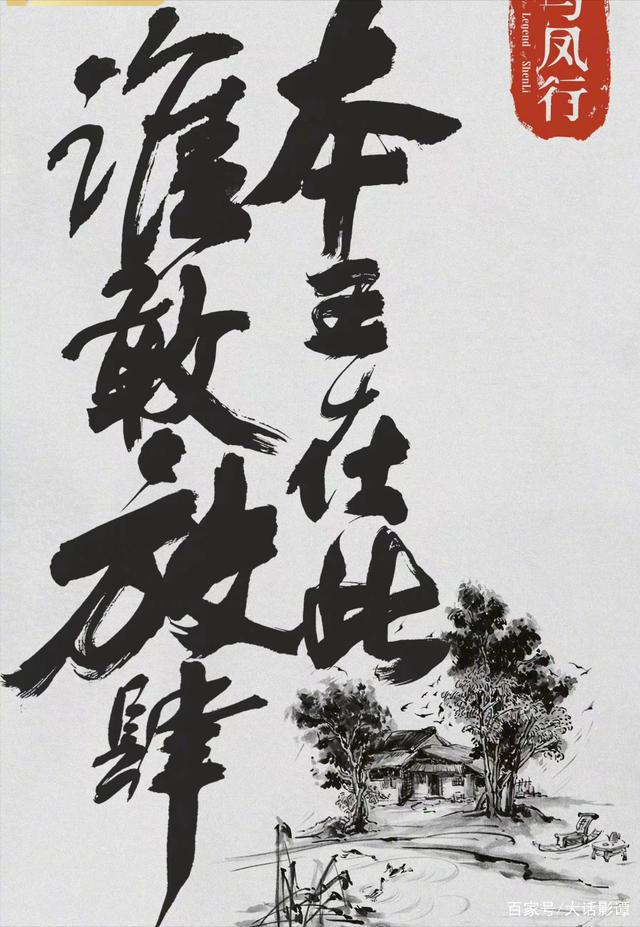 本王在此
谁敢放肆
与凤行
The Legend of ShenLi
百家号/大话影谭